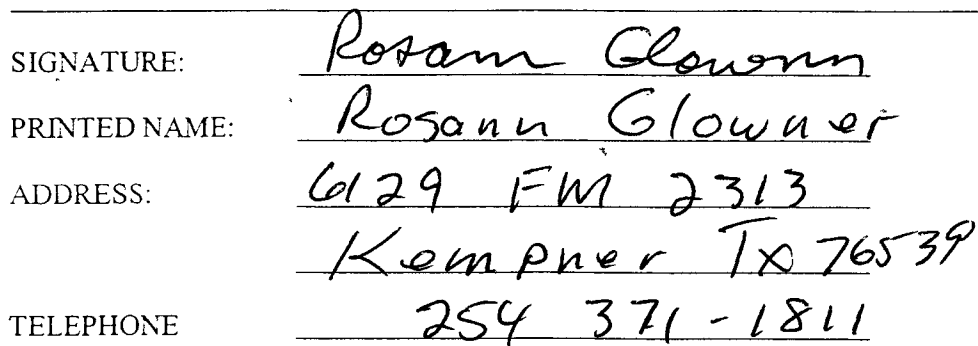 SIGNATURE: Rosann Glowner
PRINTED NAME: Rosann Glowner
ADDRESS: 6129 FM 2313
Kempner Tx 76539
TELEPHONE 254 371-1811